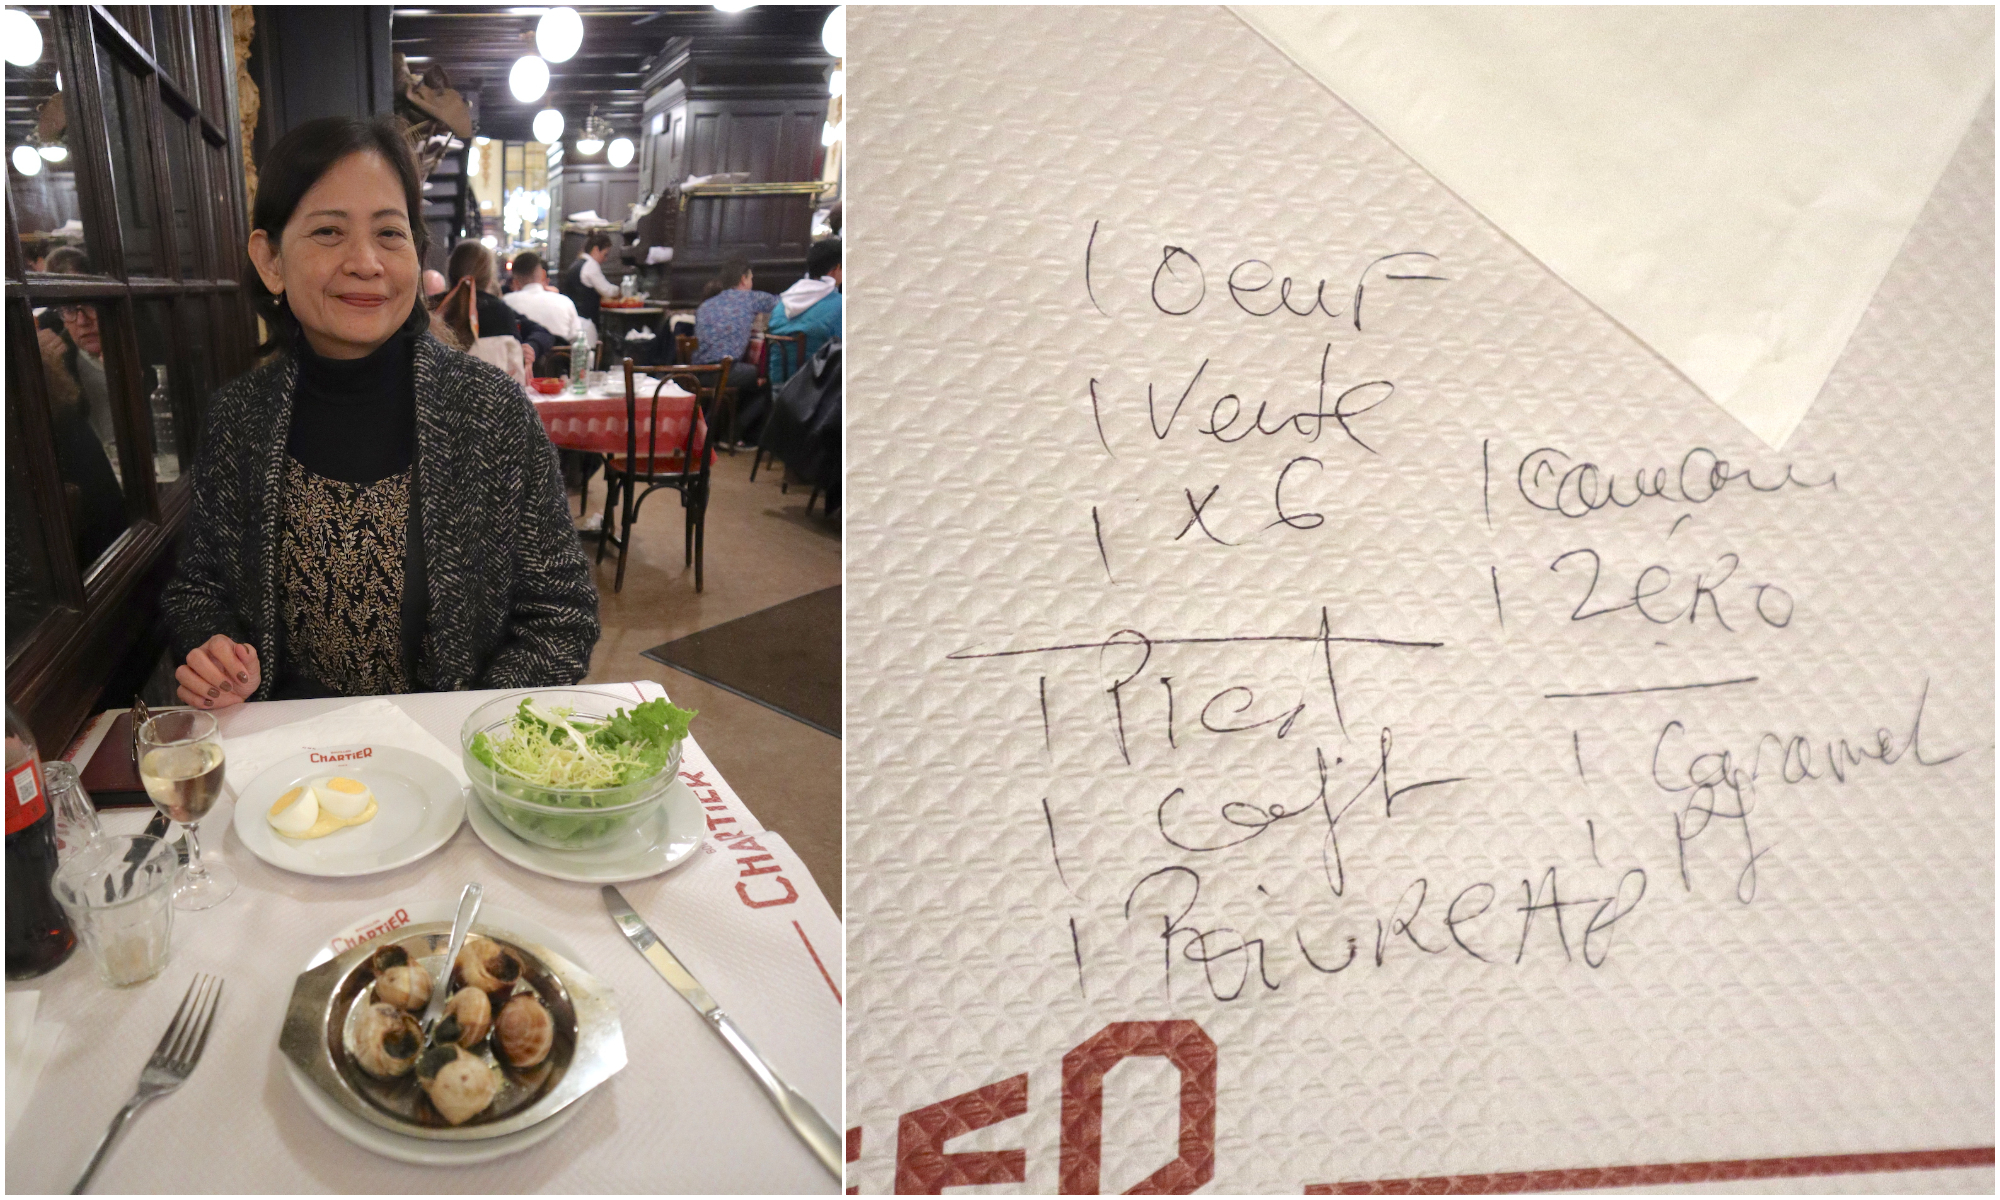 CHARTIER
CHARTIER
CHARTIER
1 Oeuf
1 Verte
1 x 6
1 Pied
1 Confit
1 Poivre
1 
1 Zéro
1 Caramel
1 PJ